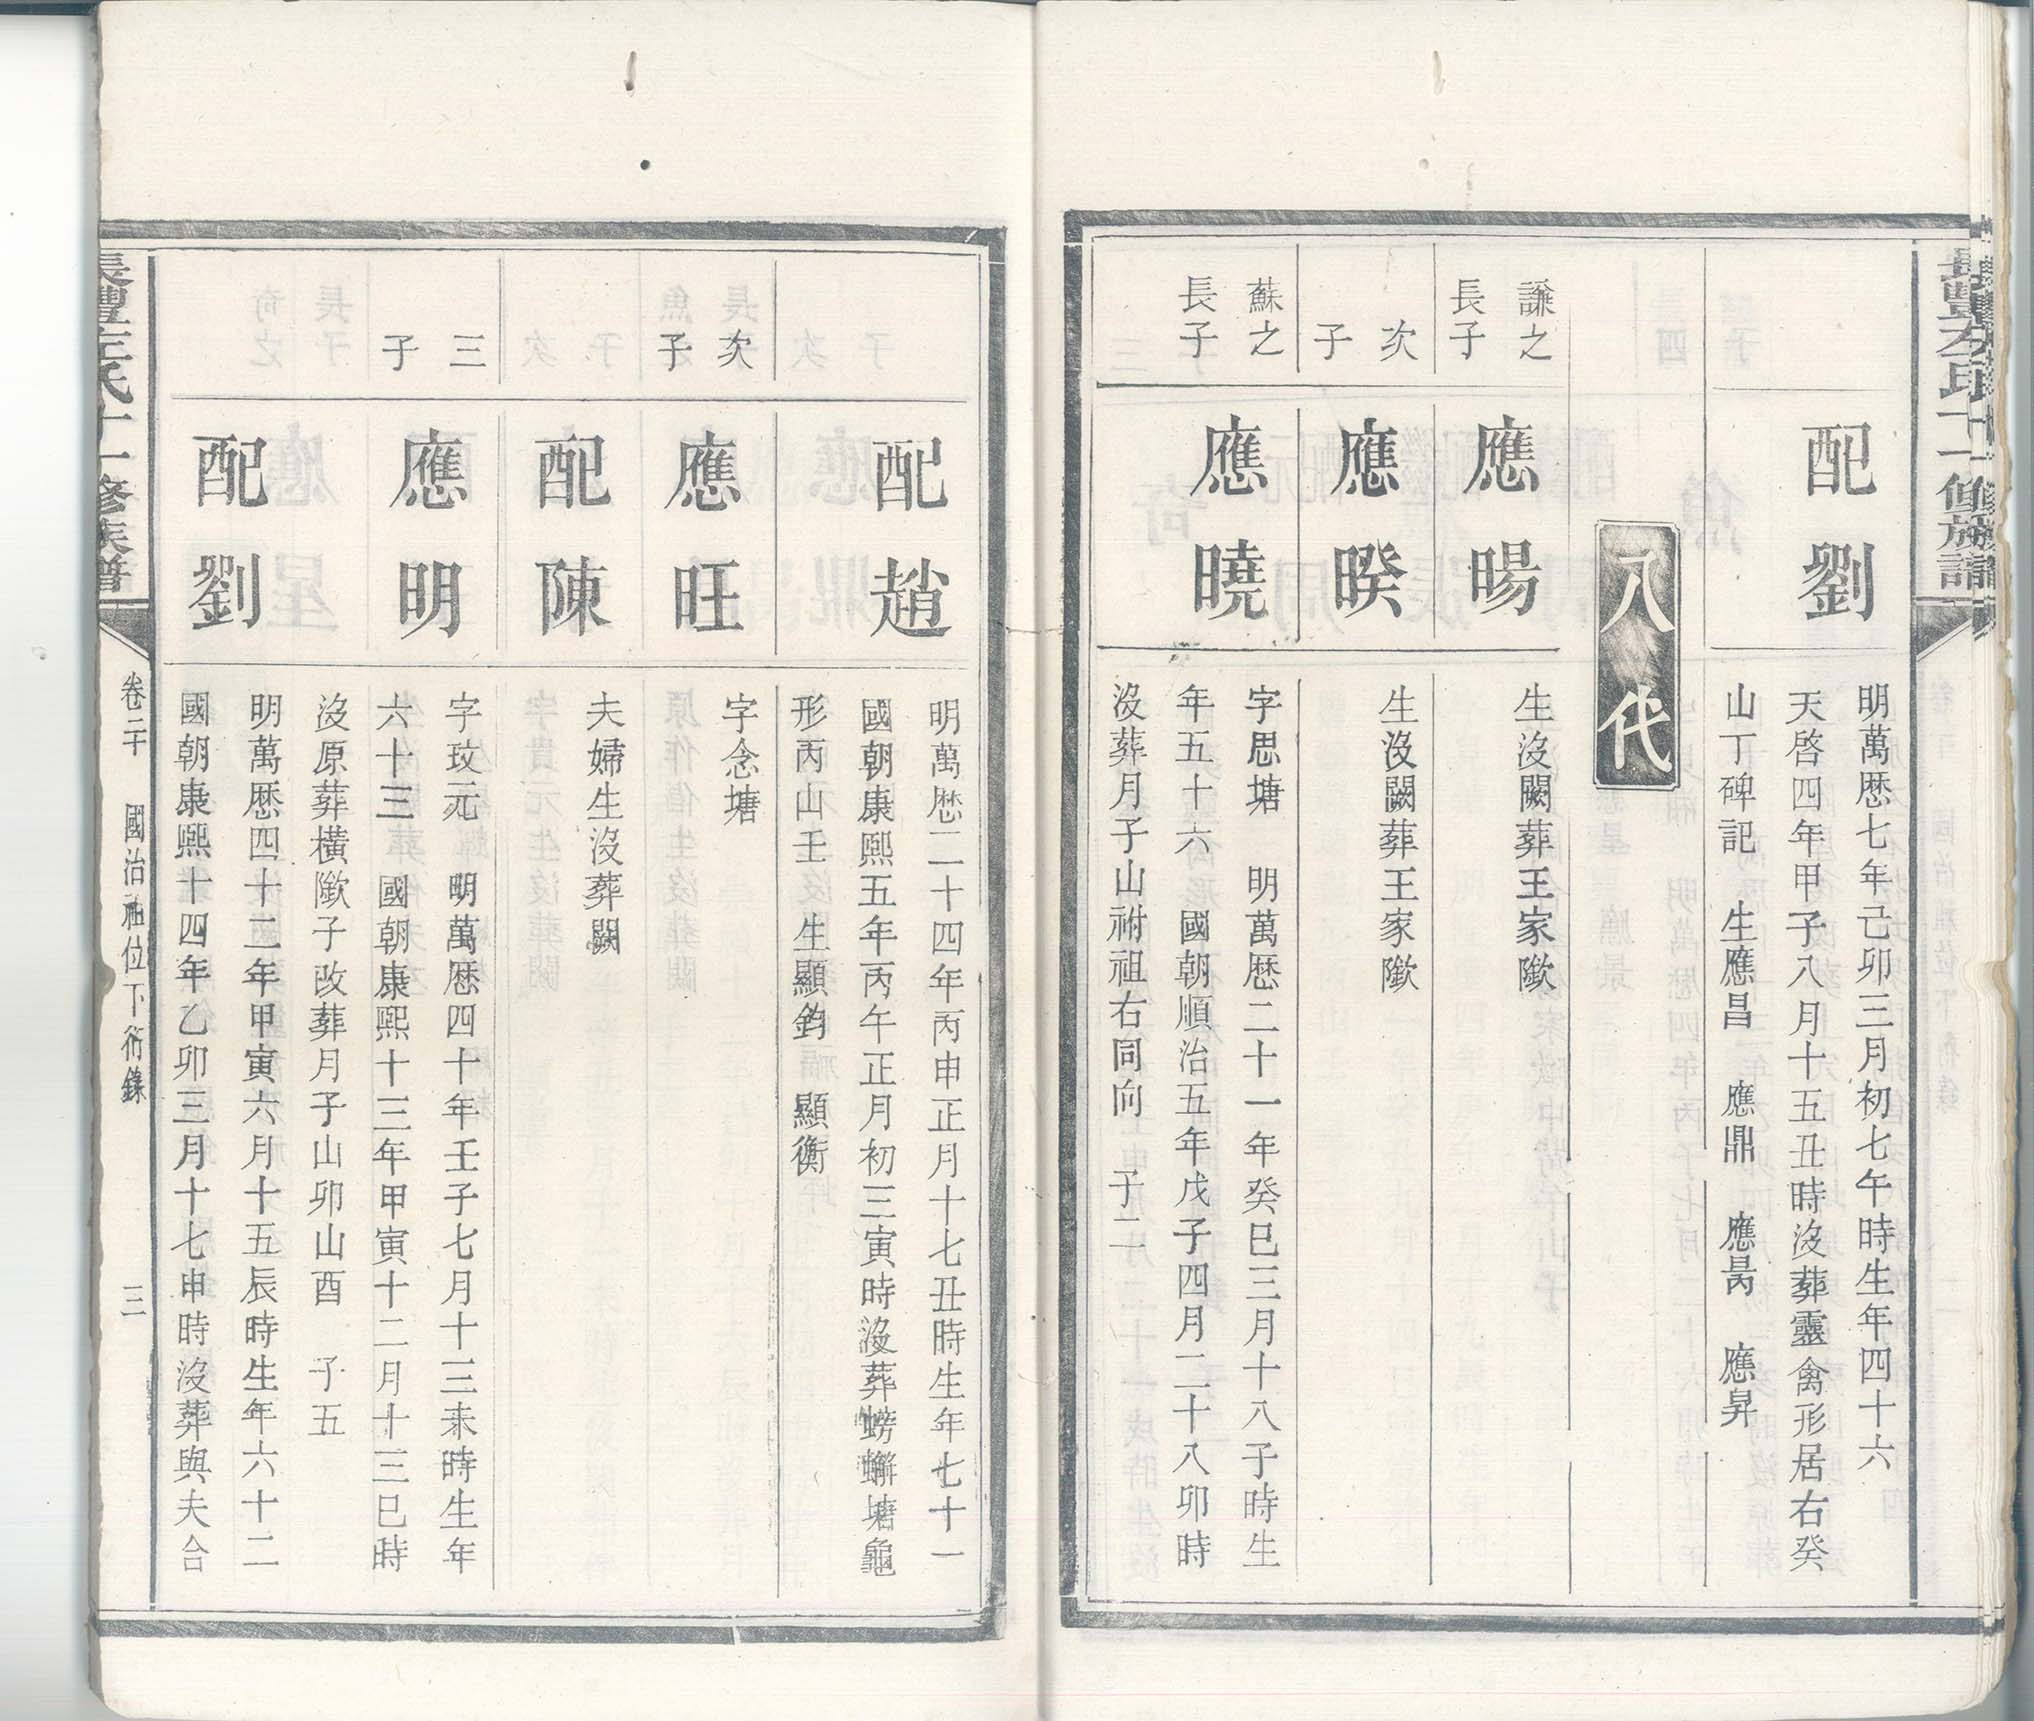 配劉
明萬厯七年己卯三月初七午時生年四十六
天啓四年甲子八月十五丑時沒葬靈禽形居右癸
山丁碑記 生應昌 應鼎 應昺 應昇
八代
謙之
長子
應暘
生沒闕葬王家𡑞
次
子
應暌
生沒闕葬王家𡑞
蘇之
長子
應曉
字思塘 明萬厯二十一年癸巳三月十八子時生
年五十六 國朝順治五年戊子四月二十八卯時
沒葬月子山祔祖右同向 子二
配趙
明萬厯二十四年丙申正月十七丑時生年七十一
國朝康熙五年丙午正月初三寅時沒葬螃蠏塘龜
形丙山壬 生顯鈞 顯衡
次
子
應旺
字念塘
配陳
夫婦生沒葬闕
三
子
應明
字玟元 明萬厯四十年壬子七月十三未時生年
六十三 國朝康熙十三年甲寅十二月十三巳時
沒原葬橫𡑞子改葬月子山卯山酉 子五
配劉
明萬厯四十二年甲寅六月十五辰時生年六十二
國朝康熙十四年乙卯三月十七申時沒葬與夫合
長豐左氏十一修族譜
卷二十 國治祖位下衍錄 三